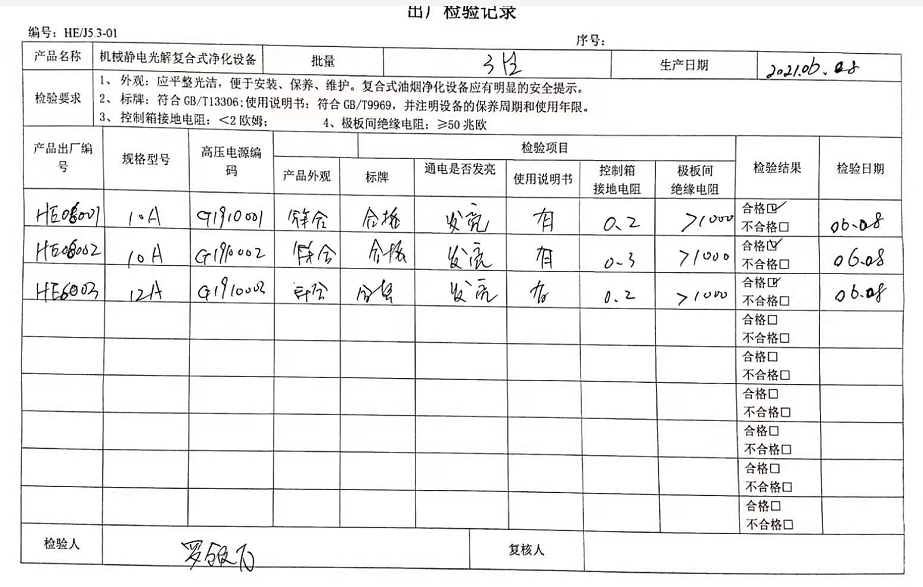 出厂检验记录
编号：HE/J5.3-01
序号：
产品名称 机械静电光解复合式净化设备 批量 3台 生产日期 2021.06.08
检验要求
1、外观：应平整光洁，便于安装、保养、维护。复合式油烟净化设备应有明显的安全提示。
2、标牌：符合 GB/T13306;使用说明书：符合 GB/T9969，并注明设备的保养周期和使用年限。
3、控制箱接地电阻：＜2 欧姆； 4、极板间绝缘电阻：≥50 兆欧
产品出厂编号 规格型号 高压电源编码 检验项目 检验结果 检验日期
产品外观 标牌 通电是否发亮 使用说明书 控制箱接地电阻 极板间绝缘电阻
HE06001 10A G1910001 符合 合格 发亮 有 0.2 >1000 合格☑ 不合格□ 06.08
HE06002 10A G1910002 符合 合格 发亮 有 0.3 >1000 合格☑ 不合格□ 06.08
HE6003 12A G1910003 符合 合格 发亮 有 0.2 >1000 合格☑ 不合格□ 06.08
合格□
不合格□
合格□
不合格□
合格□
不合格□
合格□
不合格□
合格□
不合格□
合格□
不合格□
检验人 复核人